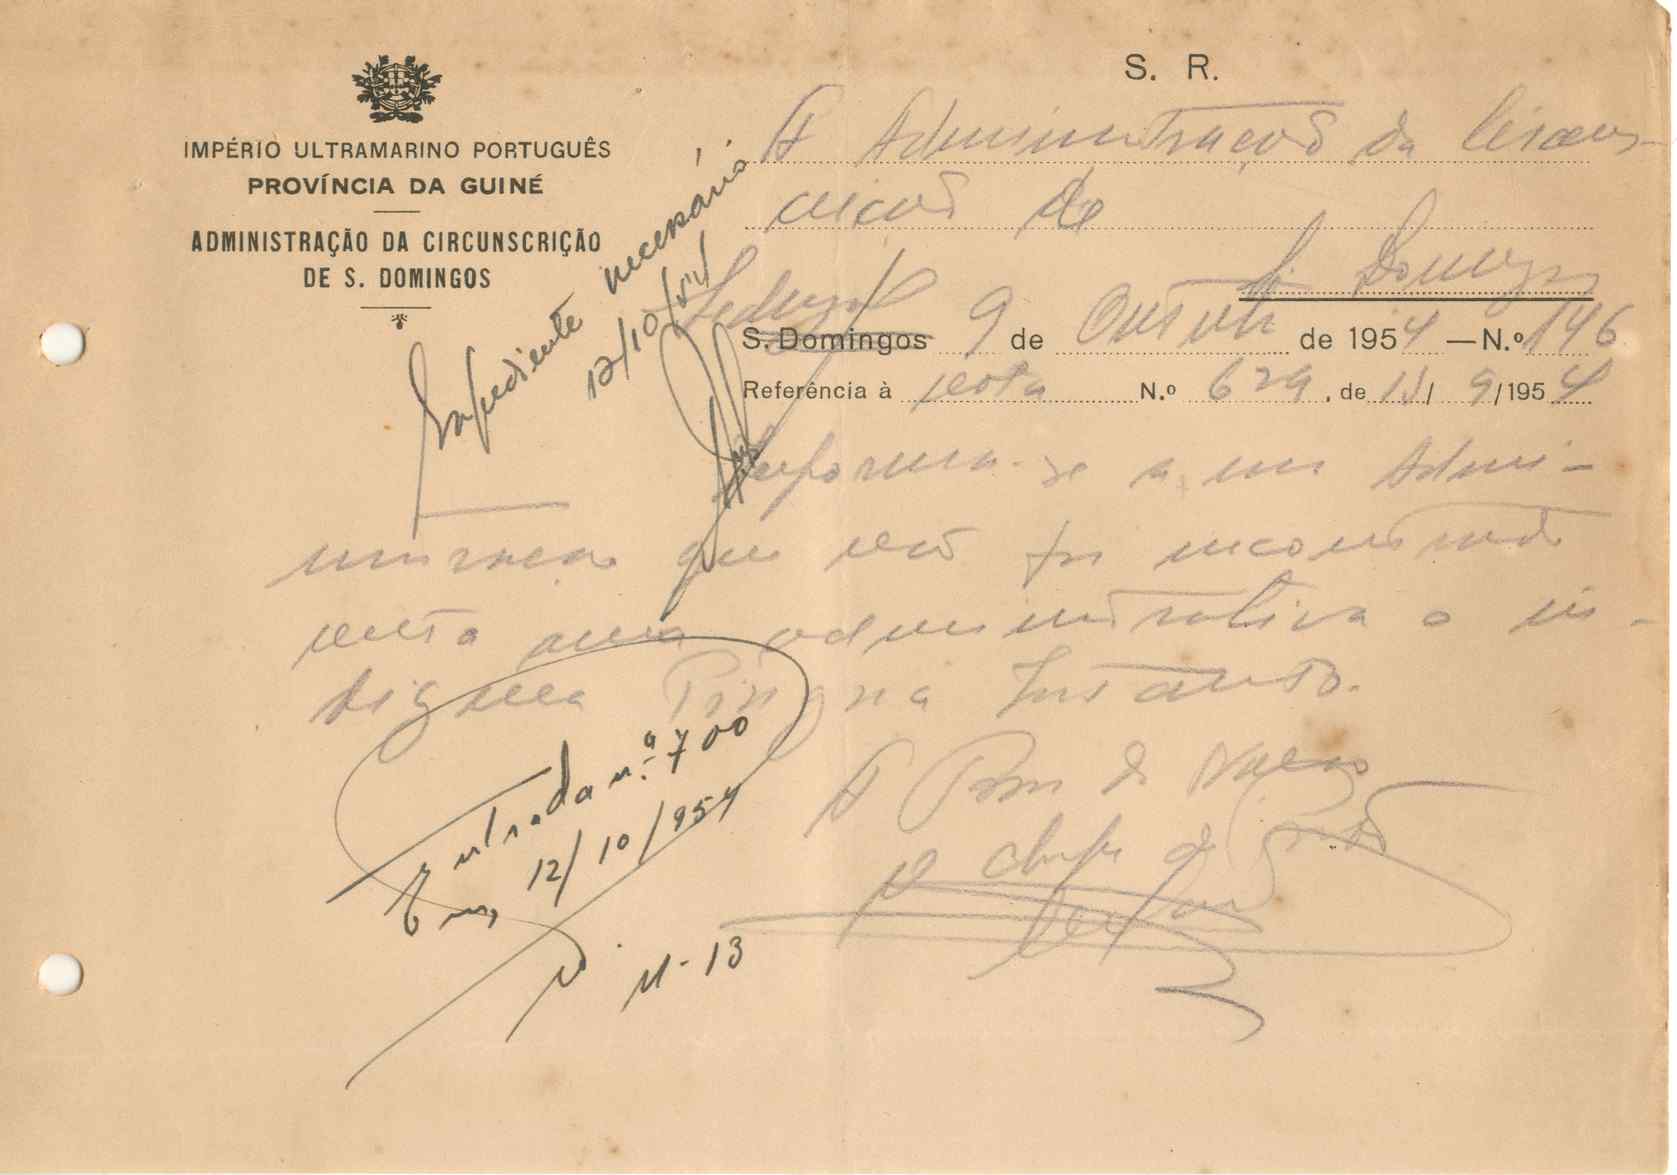 S. R.
IMPÉRIO ULTRAMARINO PORTUGUÊS
PROVÍNCIA DA GUINÉ
ADMINISTRAÇÃO DA CIRCUNSCRIÇÃO
DE S. DOMINGOS
Á Administração da Circuns-
crição de
S. Domingos
S. Domingos 9 de Outubro de 1954 — N.º 146
Referência à nota N.º 629, de 15/ 9/1954
Expediente necessário
12/10/54
Informa-se a essa Admi-
nistração que não foi encontrado
nesta área administrativa o in-
digena
A Bem da Nação
O chefe de Posto
Entrada n.º 700
Em, 12/10/954
M-13